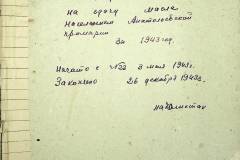 на сдачу масла
Населением Анатольевской
кромарии
За 1943 год.
Начато с №22 3 мая 1943 г.
Закончено 26 декабря 1943 г.
на 6 листах